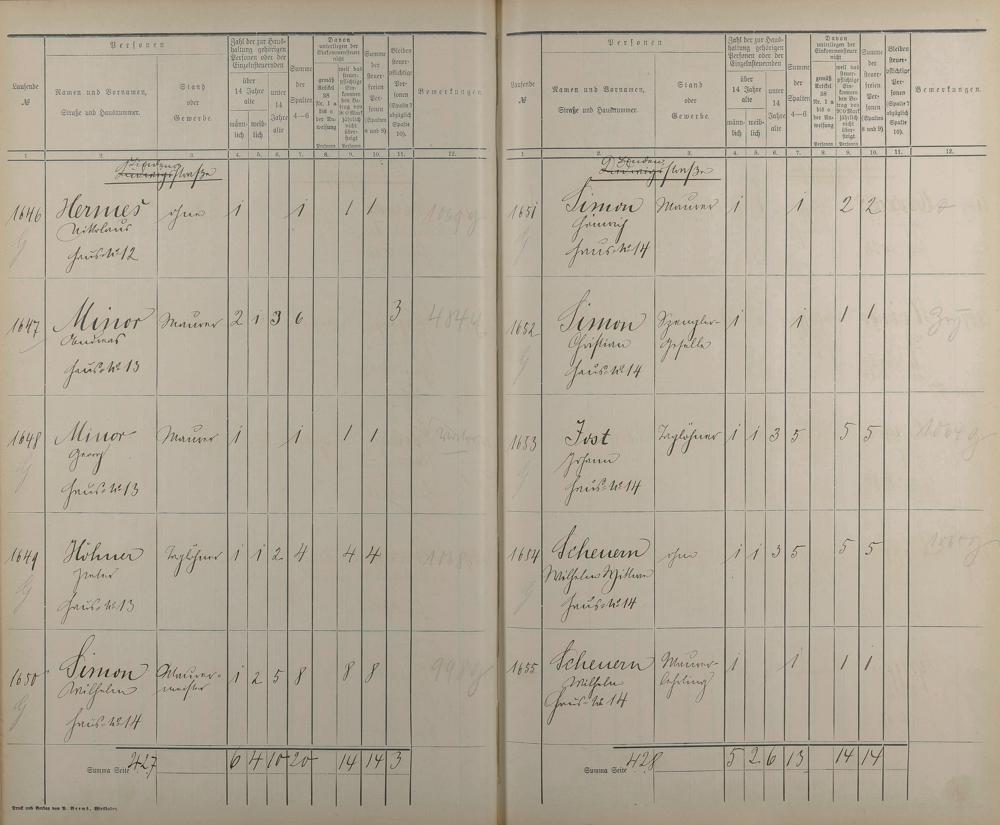 Laufende
№
Personen
Namen und Vornamen,
Straße und Hausnummer.
Stand
oder
Gewerbe.
Zahl der zur Haus-
haltung gehörigen
Personen oder der
Einzelnsteuernden
über
14 Jahre
alte
männ-
lich
weib-
lich
unter
14
Jahre
alte
Summe
der
Spalten
4—6
Davon
unterliegen der
Einkommensteuer
nicht
gemäß
Artikel
Summe
der
steuer-
freien
Per-
sonen
(Spalten
8 und 9).
Bleiben
steuer-
pflichtige
Per-
sonen
(Spalte 7
abzüglich
Spalte
10).
Bemerkungen.
1. 2. 3. 4. 5. 6. 7. 8. 9. 10. 11. 12.
Ludwigstraße
1646 Hermes ohne 1 1 1 1
Nikolaus
Haus-№ 12
1647 Minor Maurer 2 1 3 6 3
Andreas
Haus-№ 13
1648 Minor Maurer 1 1 1 1
Georg
Haus-№ 13
1649 Höhner Taglöhner 1 1 2 4 4 4
Peter
Haus-№ 13
1650 Simon Maurer- 1 2 5 8 8 8
Wilhelm meister
Haus-№ 14
Summa Seite 427 6 4 10 20 14 14 3
Druck und Verlag von Wiesbaden
Laufende
№
Personen
Namen und Vornamen,
Straße und Hausnummer.
Stand
oder
Gewerbe.
Zahl der zur Haus-
haltung gehörigen
Personen oder der
Einzelnsteuernden
über
14 Jahre
alte
männ-
lich
weib-
lich
unter
14
Jahre
alte
Summe
der
Spalten
4—6
Davon
unterliegen der
Einkommensteuer
nicht
gemäß
Artikel
Summe
der
steuer-
freien
Per-
sonen
(Spalten
8 und 9).
Bleiben
steuer-
pflichtige
Per-
sonen
(Spalte 7
abzüglich
Spalte
10).
Bemerkungen.
1. 2. 3. 4. 5. 6. 7. 8. 9. 10. 11. 12.
Ludwigstraße
1651 Simon Maurer 1 1 2 2
Heinrich
Haus-№ 14
1652 Simon Spengler- 1 1 1 1
Christian Geselle
Haus-№ 14
1653 Jost Taglöhner 1 1 3 5 5 5
Johann
Haus-№ 14
1654 Scheuern ohne 1 1 3 5 5 5
Wilhelm Wittwe
Haus-№ 14
1655 Scheuern Maurer- 1 1 1 1
Wilhelm lehrling
Haus-№ 14
Summa Seite 428 5 2 6 13 14 14